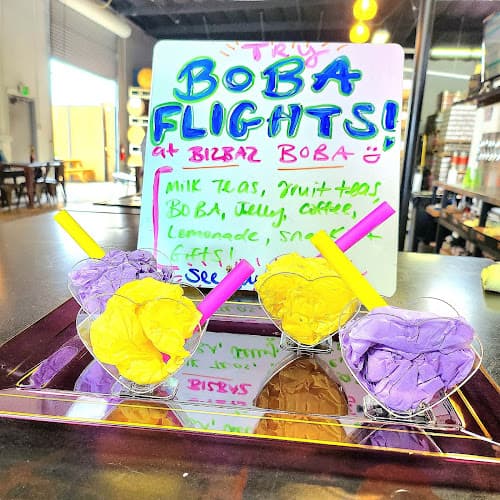 TRY
BOBA
FLIGHTS!
at BIZBAZ BOBA
MILK TEAS, fruit teas,
BOBA, Jelly, Coffee,
Lemonade, Snacks +
Gifts!
See
BIZBAZ